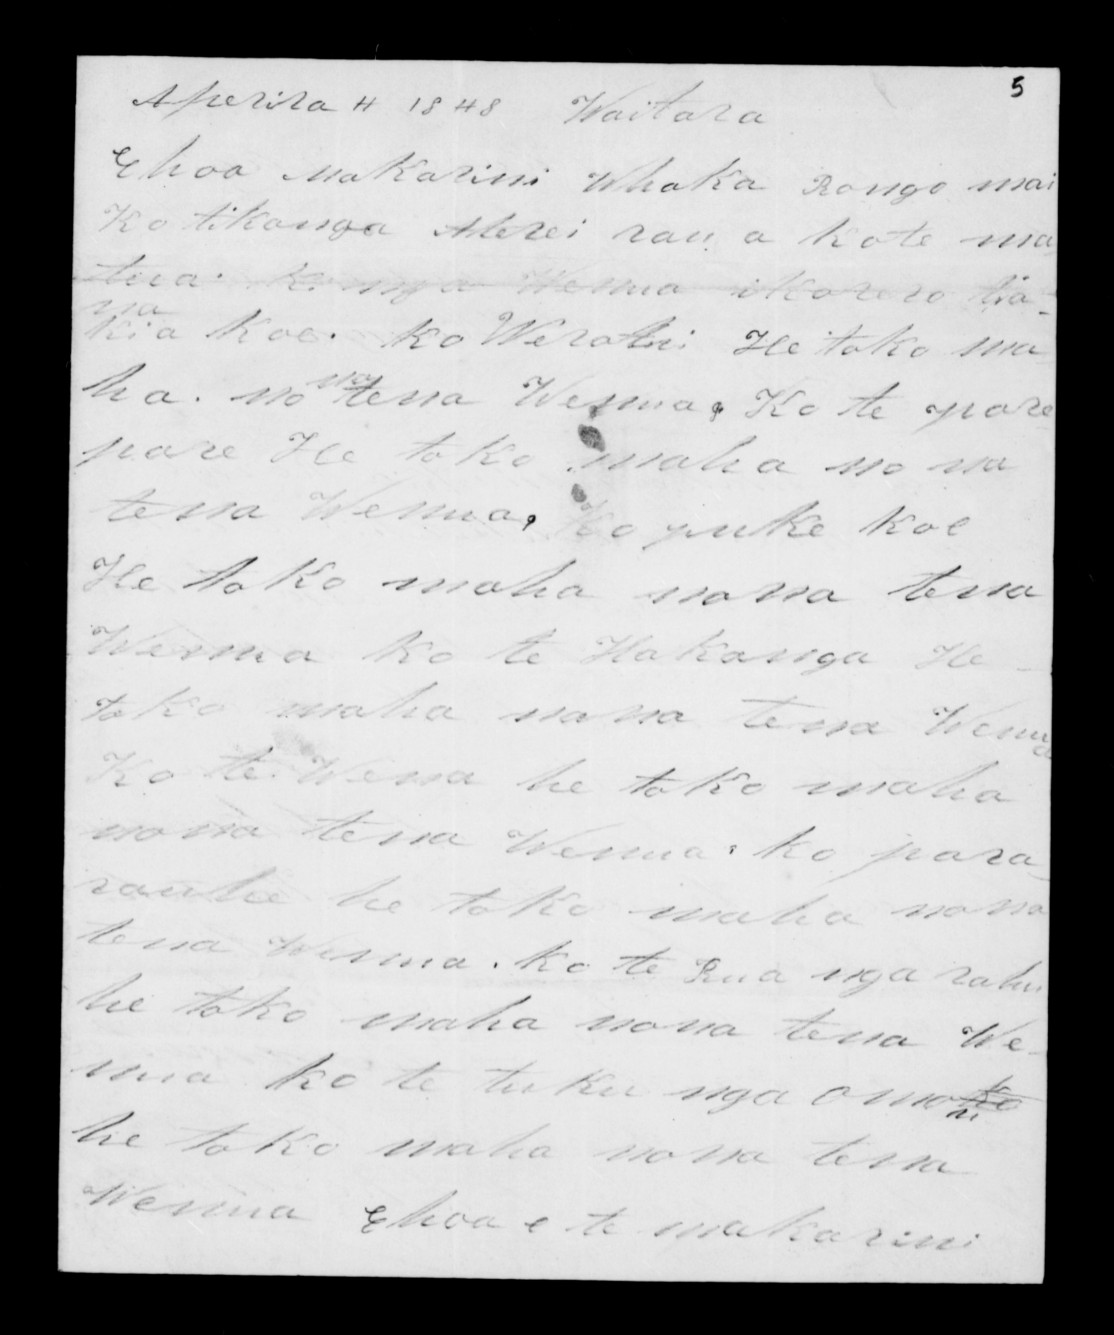 5
Aperira 4 1848 Waitara
Ehoa Makarini Whaka Rongo mai
Ko tikanga Merei rau a kote ma
tua. Ki nga Wenua ikorero tia-
na
kia koe. ko Werahi He toko ma
ha. no na tena Wenua. Ko te pare
pare He toko maha no na
tena Wenua. Ko puke koe
He toko maha nona tena
Wenua ko te Hakanga He
toko maha nona tena Wenua
Ko te Wena he toko maha
nona tena Wenua. ko para
rauhe he toko maha nona
tena Wenua. ko te Rua nga rahu
he toko maha nona tena We-
nua ko te tuku nga omo ni
he toko maha nona tena
Wenua Ehoa e te makarini